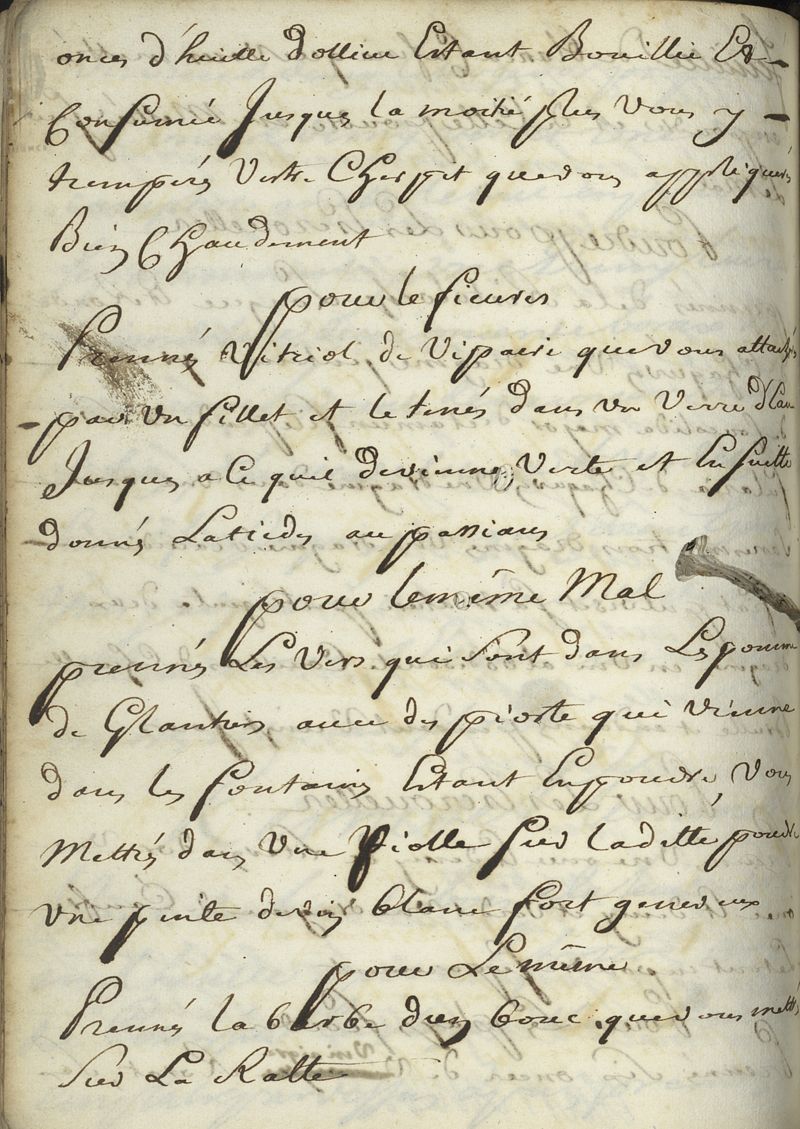 onces d'huille dollive Estant Bouillie Et
Consumée Jusques la moitié puis vous y
tremperés Vostre Cherpit que vous appliquerés
Bien Chaudement
pour le fieures
Prennés Vitriol de Vipaire que vous attachés
par Un fillet et le tenés dans un Verre d'Eau
Jusques a Ce quil devienne Verte et Ensuitte
donnés La au passians
pour le même Mal
prennés Les Vers qui Sont dans Les pomme
de avec des qui vienne
dans les fontaines Estant En poudre Vous
Mettrés dans Une Piolle Sur laditte poudre
Une pinte de vin blanc fort genereux
pour Le même
Prennés la barbe dun bouc que vous mettés
Sur La Ratte